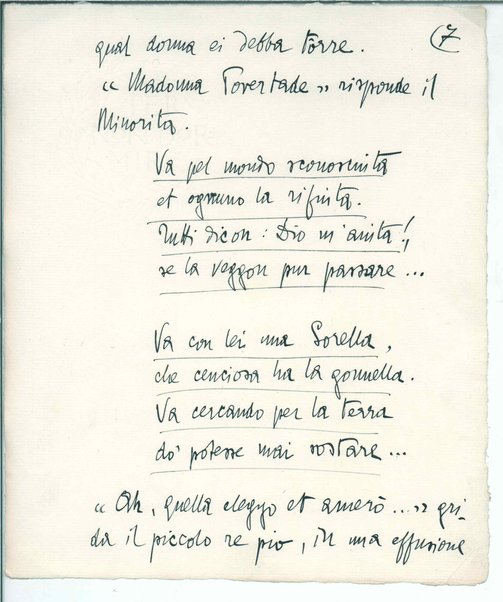 7
qual donna ei debba tôrre.
« Madonna Povertade » risponde il
Minorita.
Va pel mondo sconosciuta
et ognuno la rifiuta.
Tutti dicon: Dio m'aiuta!,
se la veggon pur passare...
Va con lei una Sorella,
che cenciosa ha la gonnella.
Va cercando per la terra
do' potesse mai sostare...
« Oh, quella eleggo et amerò... » gri-
da il piccolo re pio, in una effusione